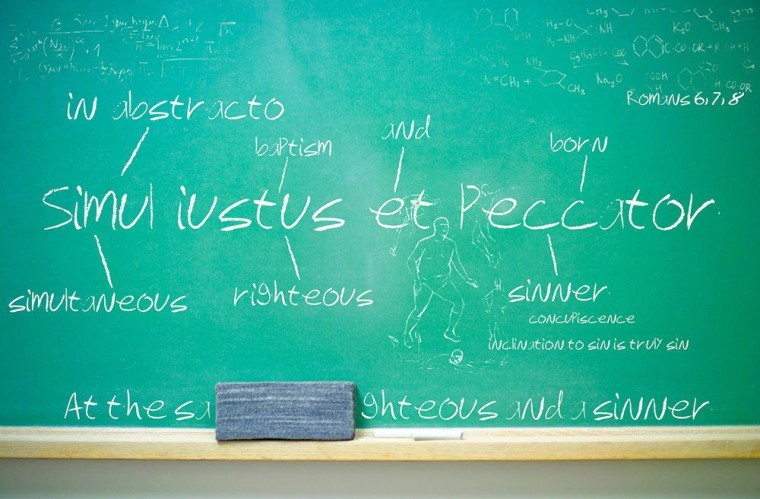 Romans 6,7,8
in abstracto
and
baptism
born
Simul iustus et Peccator
simultaneous
righteous
sinner
concupiscence
inclination to sin is truly sin
At the sa ghteous and a sinner